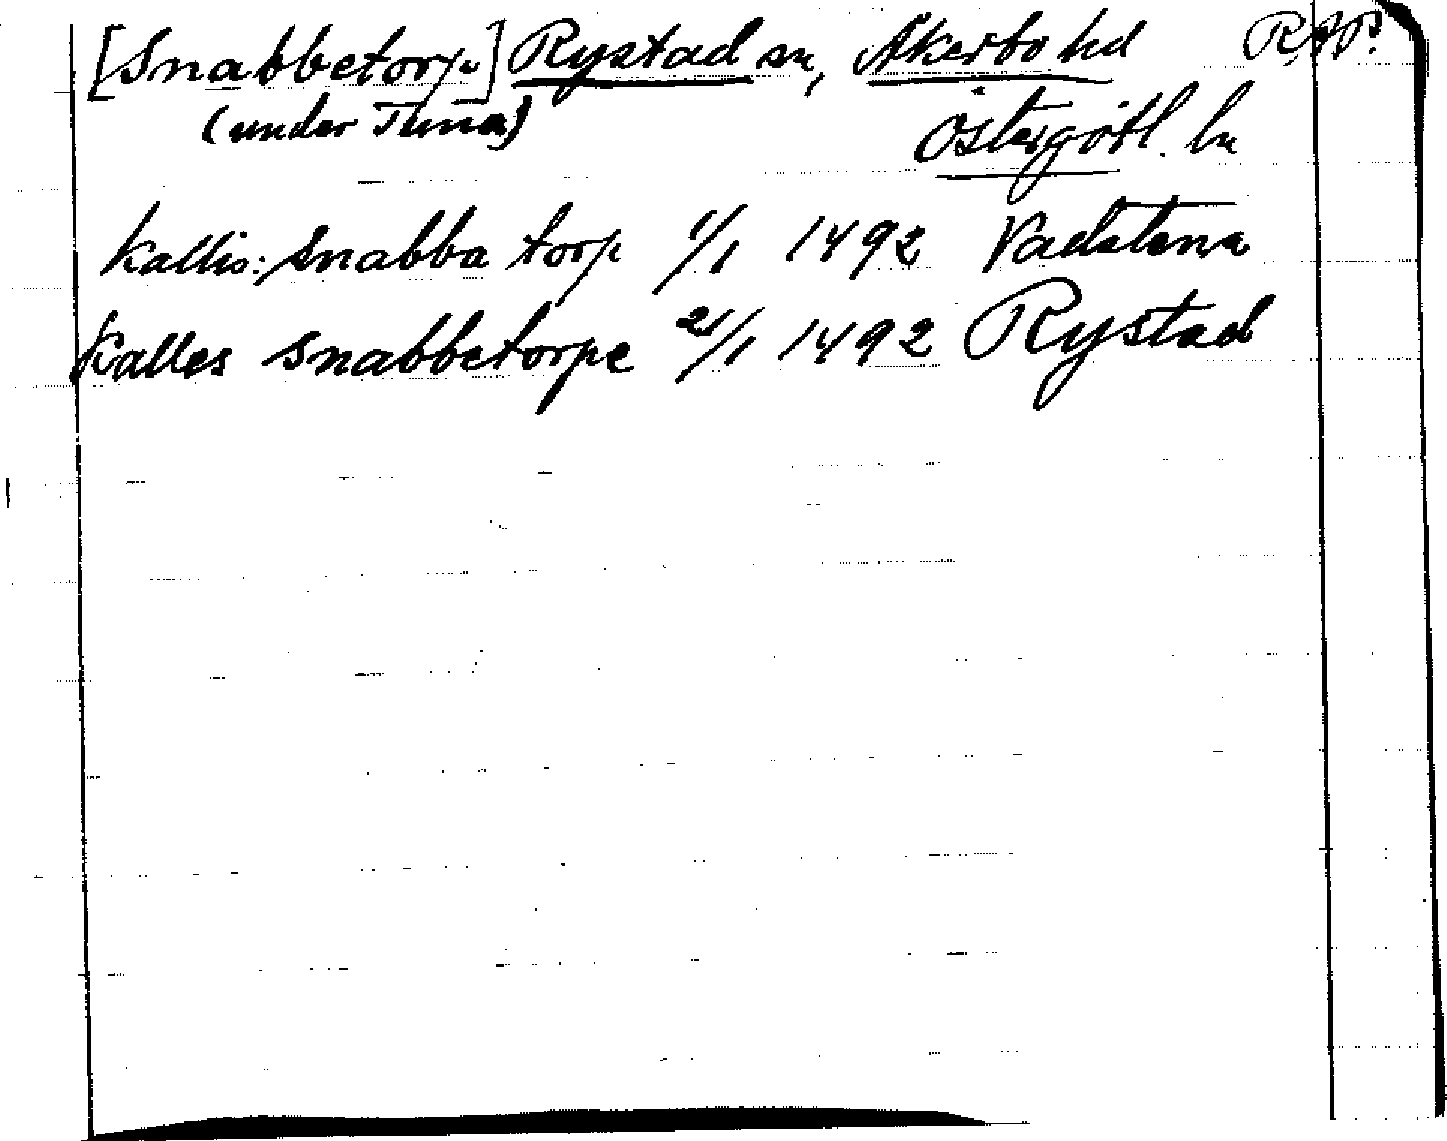 [Snabbetorp] Rystad sn, Åkerbo hd RAP.
(under Tuna) Östergötl. ln
kallis: snabba torp 1/1 1492 Vadstena
kalles snabbetorpe 21/1 1492 Rystad